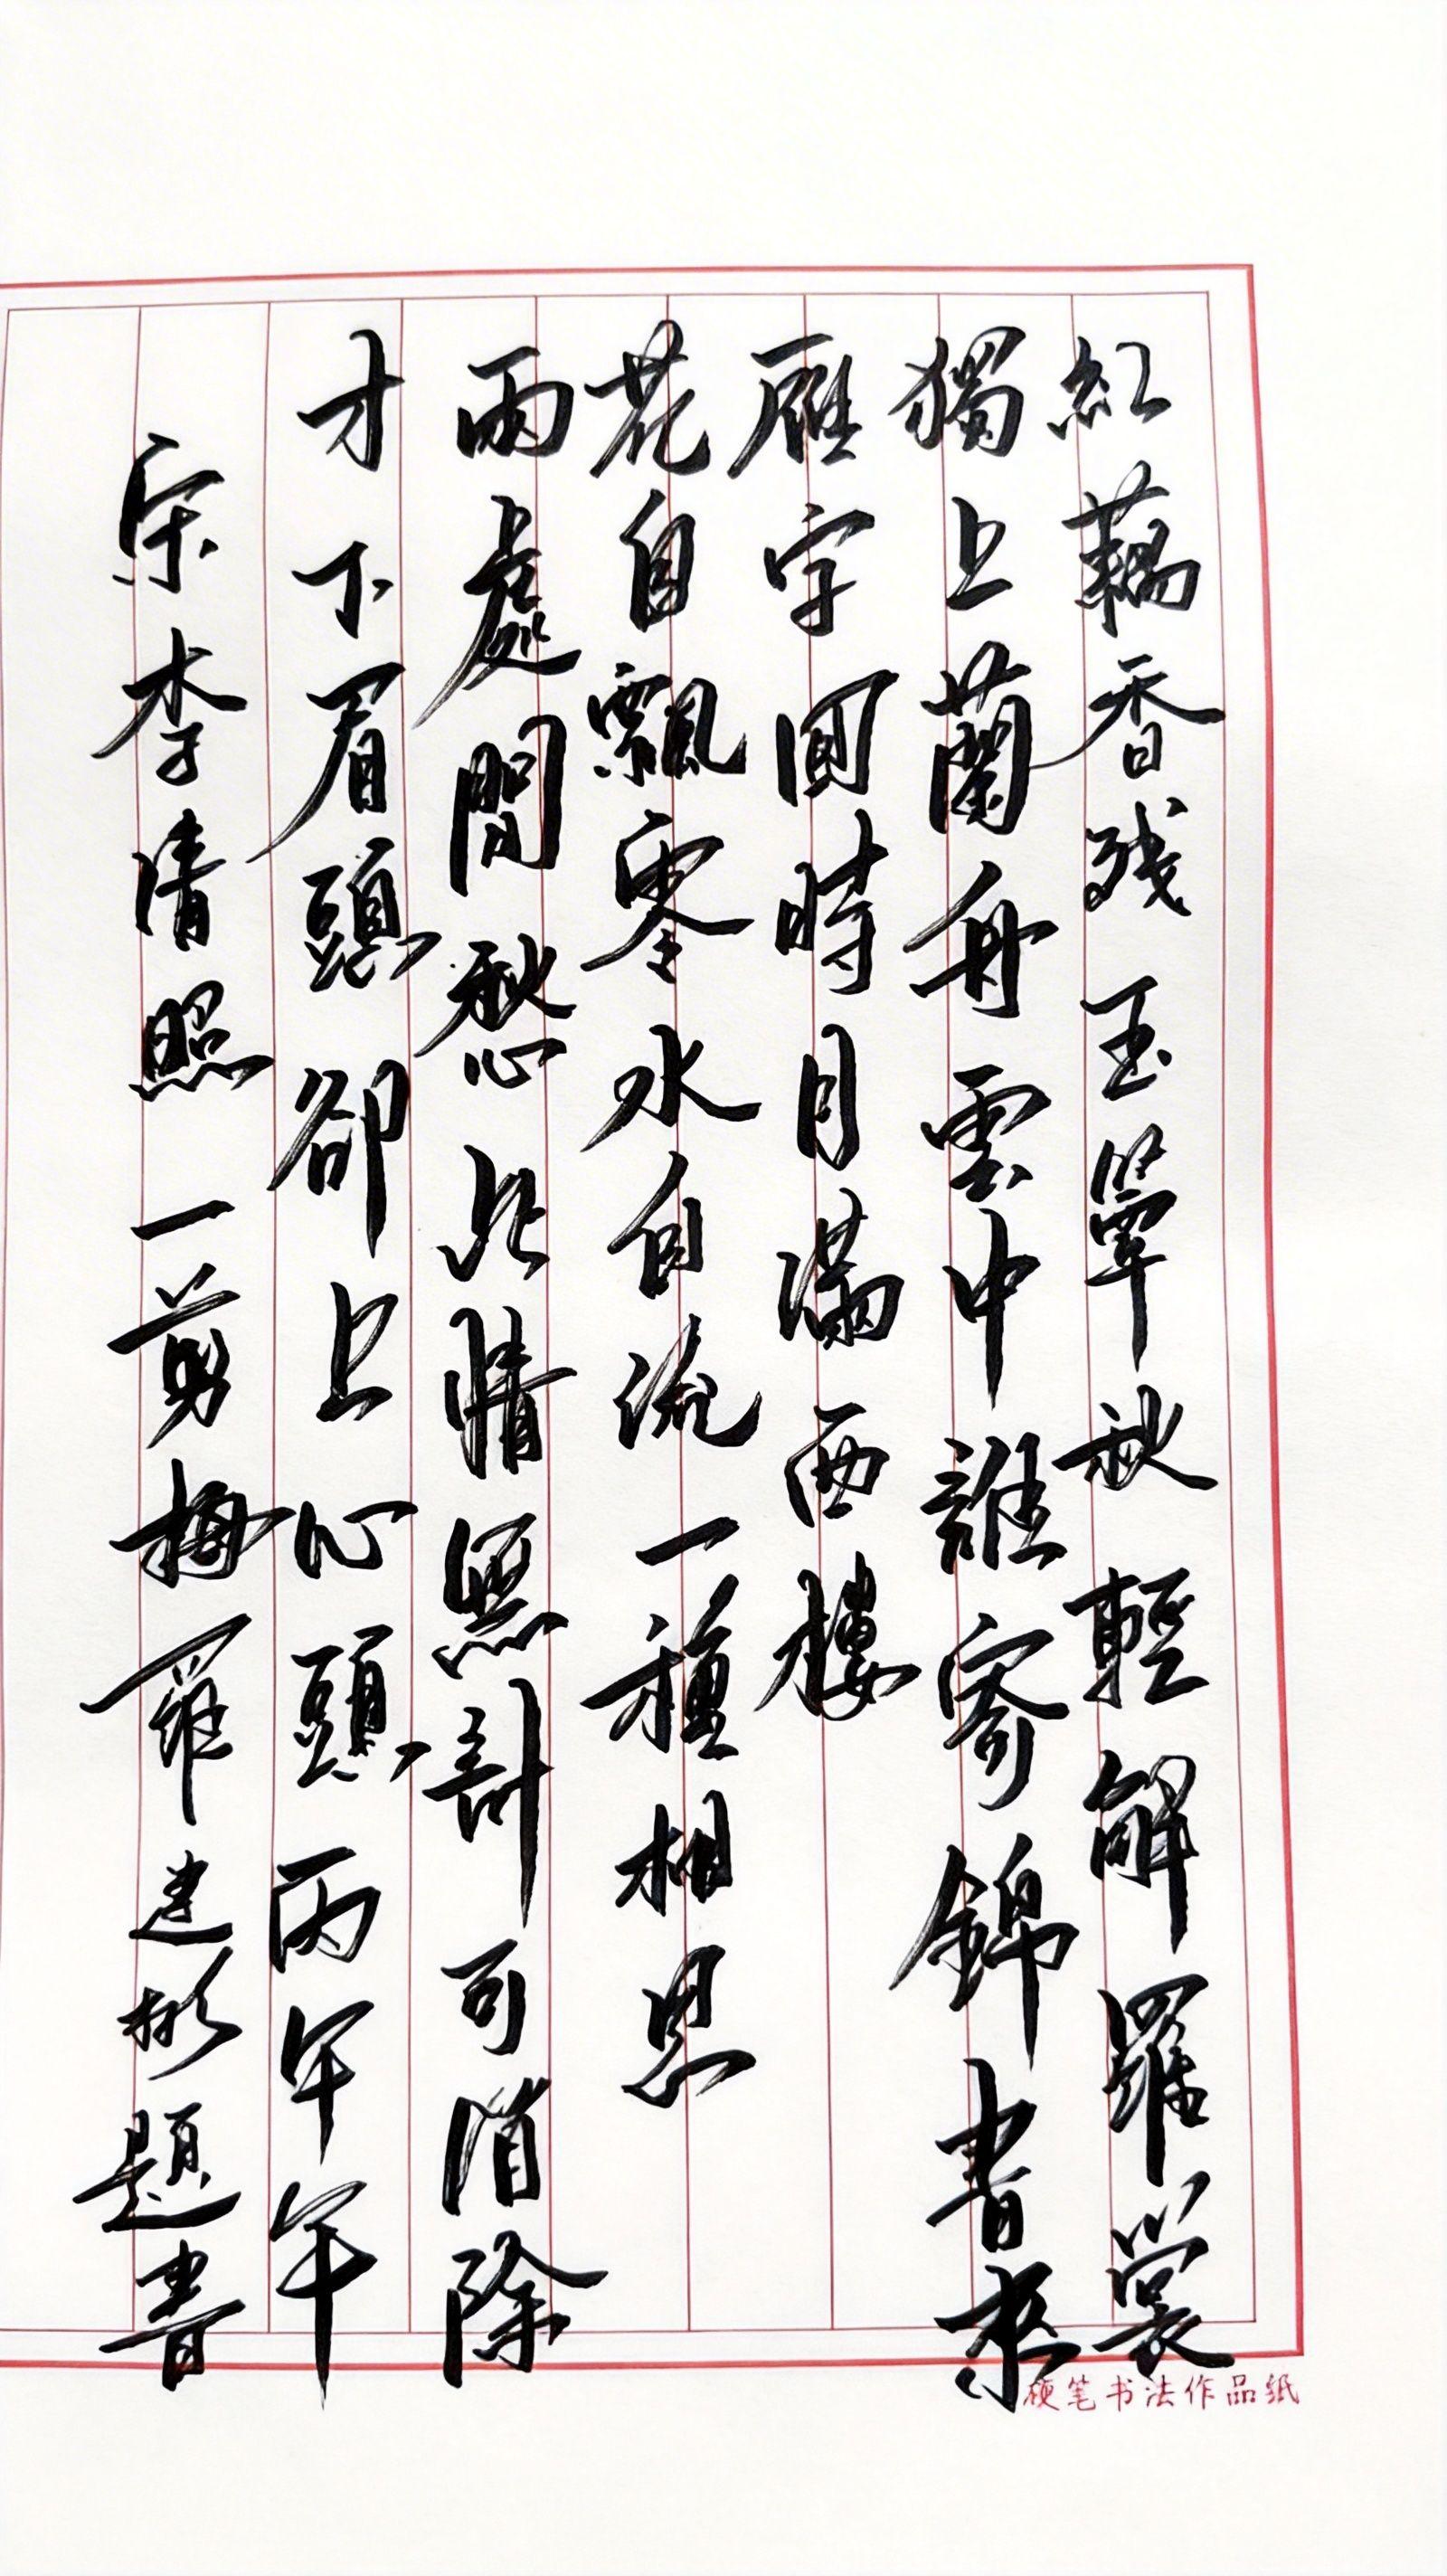 紅藕香残玉簟秋輕解羅裳
獨上蘭舟雲中誰寄錦書來
雁字回時月滿西樓
花自飄零水自流一種相思
兩處閒愁此情無計可消除
才下眉頭卻上心頭丙午年
宋李清照一剪梅羅建彬題書
硬笔书法作品纸